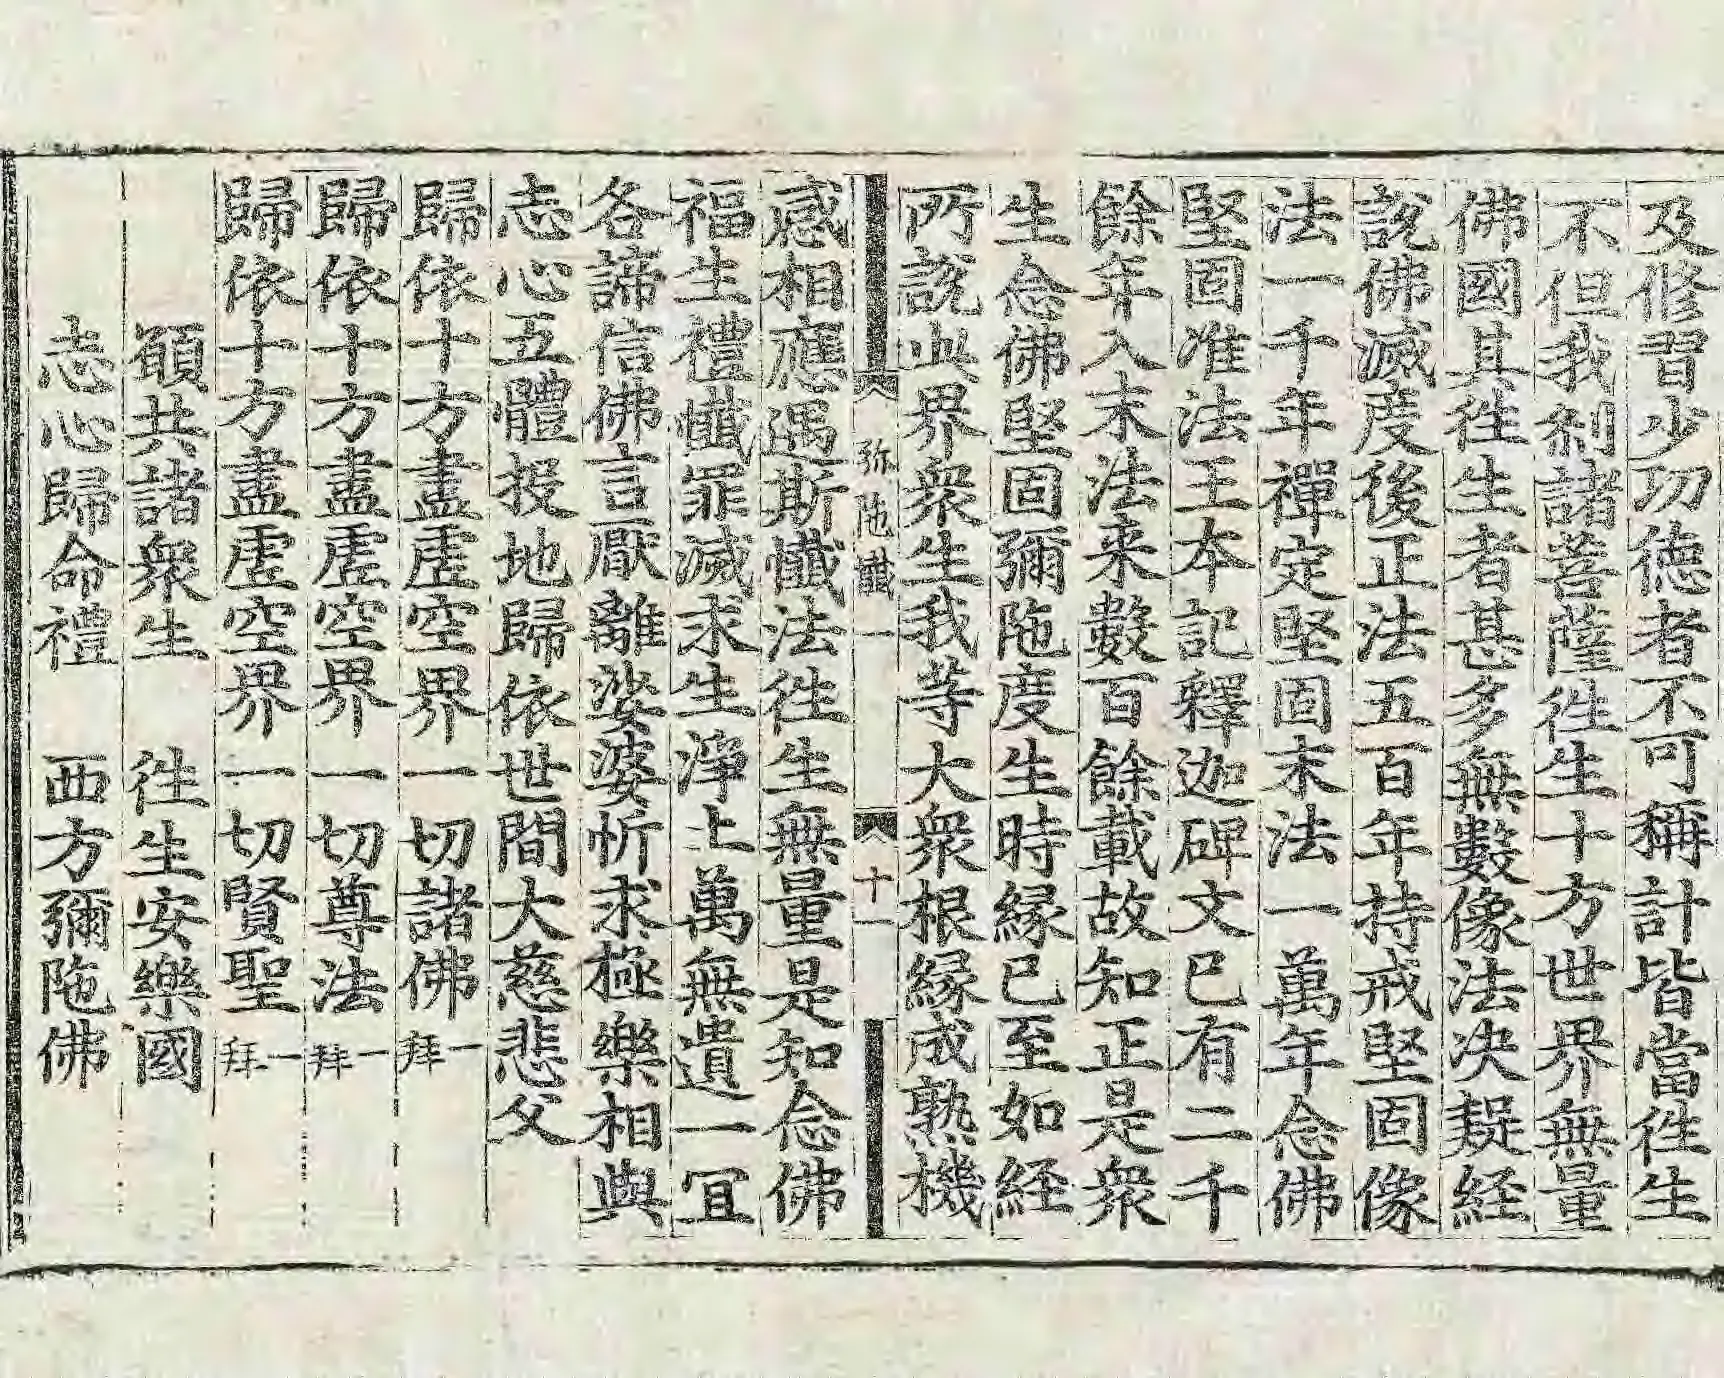 及修習少功德者不可稱計皆當徃生
不但我刹諸菩薩徃生十方世界無量
佛國其徃生者甚多無數像法决疑経
說佛滅度後正法五百年持戒堅固像
法一千年禪定堅固末法一萬年念佛
堅固准法王本記釋迦碑文已有二千
餘年入末法来數百餘載故知正是衆
生念佛堅固彌陁度生時縁已至如経
所說此界衆生我等大衆根縁成熟機
弥陁懺一 十一
感相應遇斯懺法徃生無量是知念佛
福生禮懺罪滅求生淨土萬無遺一冝
各諦信佛言厭離娑婆忻求極樂相與
志心五體投地歸依世間大慈悲父
歸依十方盡虛空界一切諸佛 一拜
歸依十方盡虛空界一切尊法 一拜
歸依十方盡虛空界一切賢聖 一拜
願共諸衆生 徃生安樂國
志心歸命禮 西方彌陁佛